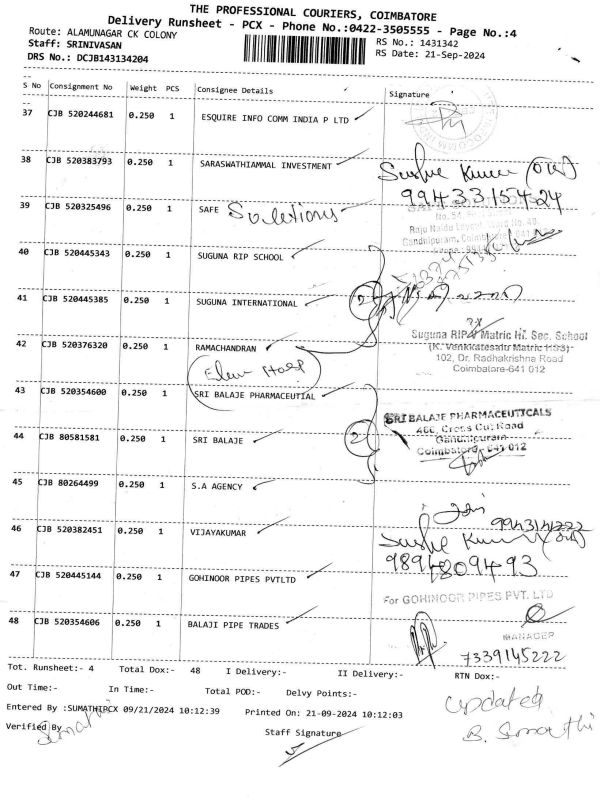 THE PROFESSIONAL COURIERS, COIMBATORE
Delivery Runsheet - PCX - Phone No.:0422-3505555 - Page No.:4
Route: ALAMUNAGAR CK COLONY
RS No.: 1431342
Staff: SRINIVASAN
RS Date: 21-Sep-2024
DRS No.: DCJB143134204
S No Consignment No Weight PCS Consignee Details Signature
37 CJB 520244681 0.250 1 ESQUIRE INFO COMM INDIA P LTD
38 CJB 520383793 0.250 1 SARASWATHIAMMAL INVESTMENT
9943315424
39 CJB 520325496 0.250 1 SAFE Solutions
Gandhipuram, Coimbatore-641
40 CJB 520445343 0.250 1 SUGUNA RIP SCHOOL
41 CJB 520445385 0.250 1 SUGUNA INTERNATIONAL
2
Suguna RIPV Matric Hr. Sec. School
42 CJB 520376320 0.250 1 RAMACHANDRAN
(K. Venkkatesalu Matric HSS)
102, Dr. Radhakrishna Road
Coimbatore-641 012
43 CJB 520354600 0.250 1 SRI BALAJE PHARMACEUTIAL
SRI BALAJE PHARMACEUTICALS
466, Cross Cut Road
Gandhipuram
Coimbatore - 641 012
44 CJB 80581581 0.250 1 SRI BALAJE
2
45 CJB 80264499 0.250 1 S.A AGENCY
46 CJB 520382451 0.250 1 VIJAYAKUMAR
9894809493
47 CJB 520445144 0.250 1 GOHINOOR PIPES PVTLTD
For GOHINOOR PIPES PVT. LTD
MANAGER
48 CJB 520354606 0.250 1 BALAJI PIPE TRADES
7339145222
Tot. Runsheet:- 4 Total Dox:- 48 I Delivery:- II Delivery:- RTN Dox:-
Out Time:- In Time:- Total POD:- Delvy Points:-
Entered By :SUMATHIPCX 09/21/2024 10:12:39 Printed On: 21-09-2024 10:12:03
Updated
Verified By
Sumathi
Staff Signature
B. Sumathi